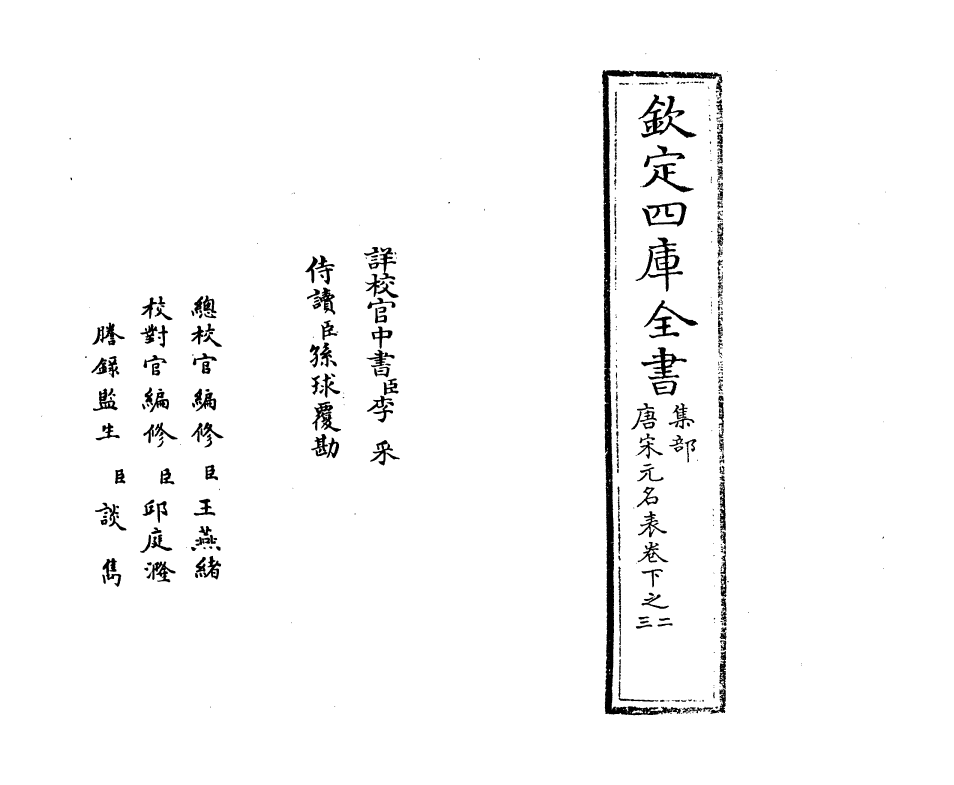 欽定四庫全書
集部
唐宋元名表卷下之二三
詳校官中書臣李采
侍讀臣孫球覆勘
總校官編修臣王燕緒
校對官編修臣邱庭漋
謄錄監生臣談雋